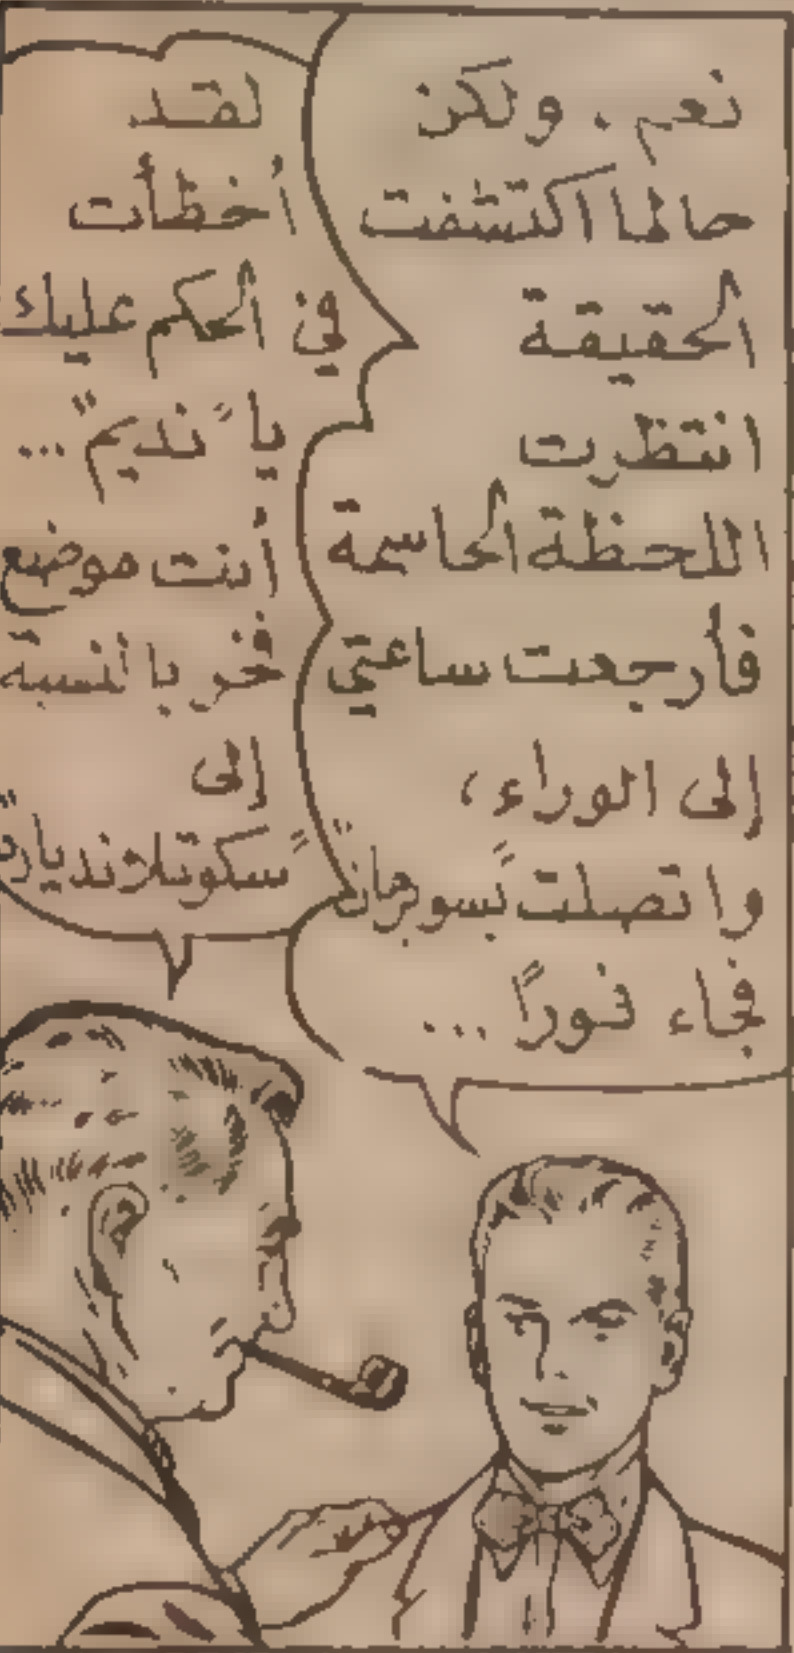 نعم . ولكن
حالما اكتشفت
الحقيقة
انتظرت
اللحظة الحاسمة
فأرجعت ساعتي
إلى الوراء ،
واتصلت بـ"سوبرمان"
فجاء فورًا ...
لقد
أخطأت
في الحكم عليك
يا "نديم" ...
أنت موضع
فخر بالنسبة
إلى
"سكوتلانديارد"